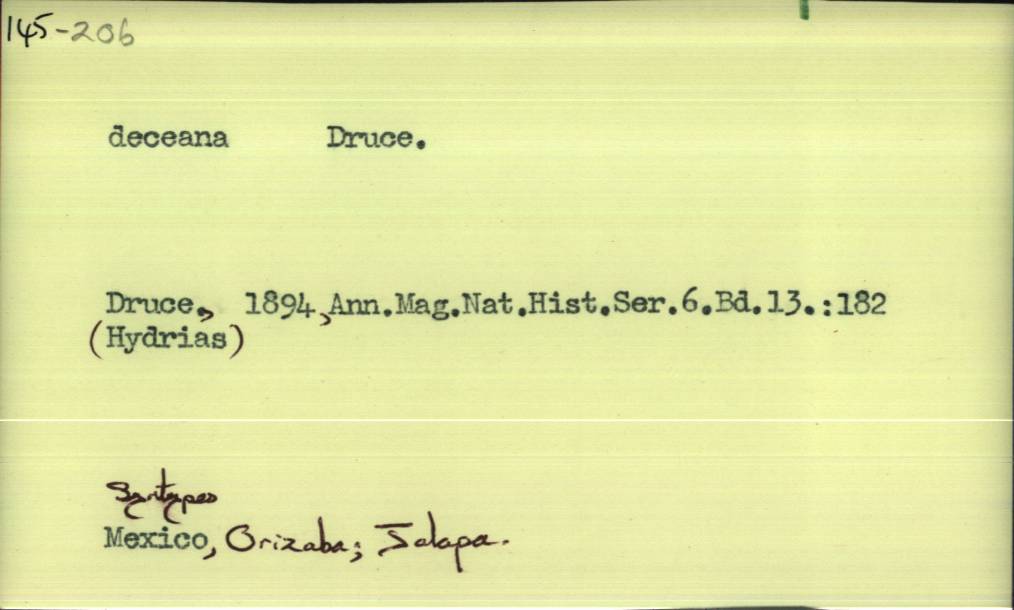 145-206
deceana Druce.
Druce, 1894, Ann.Mag.Nat.Hist.Ser.6.Bd.13.:182
(Hydrias)
Syntypes
Mexico, Orizaba; Jalapa.